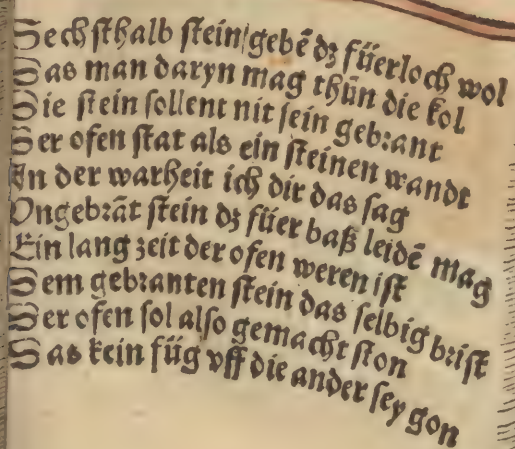 Sechsthalb stein/gebẽ dz füerloch wol
Das man daryn mag thůn die kol
Die stein sollent nit sein gebrant
Der ofen stat als ein steinen wandt
In der warheit ich dir das sag
Ongebrãt stein dz füer baß leidẽ mag
Ein lang zeit der ofen weren ist
Dem gebranten stein das selbig brist
Der ofen sol also gemacht ston
Das kein füg vff die ander sey gon